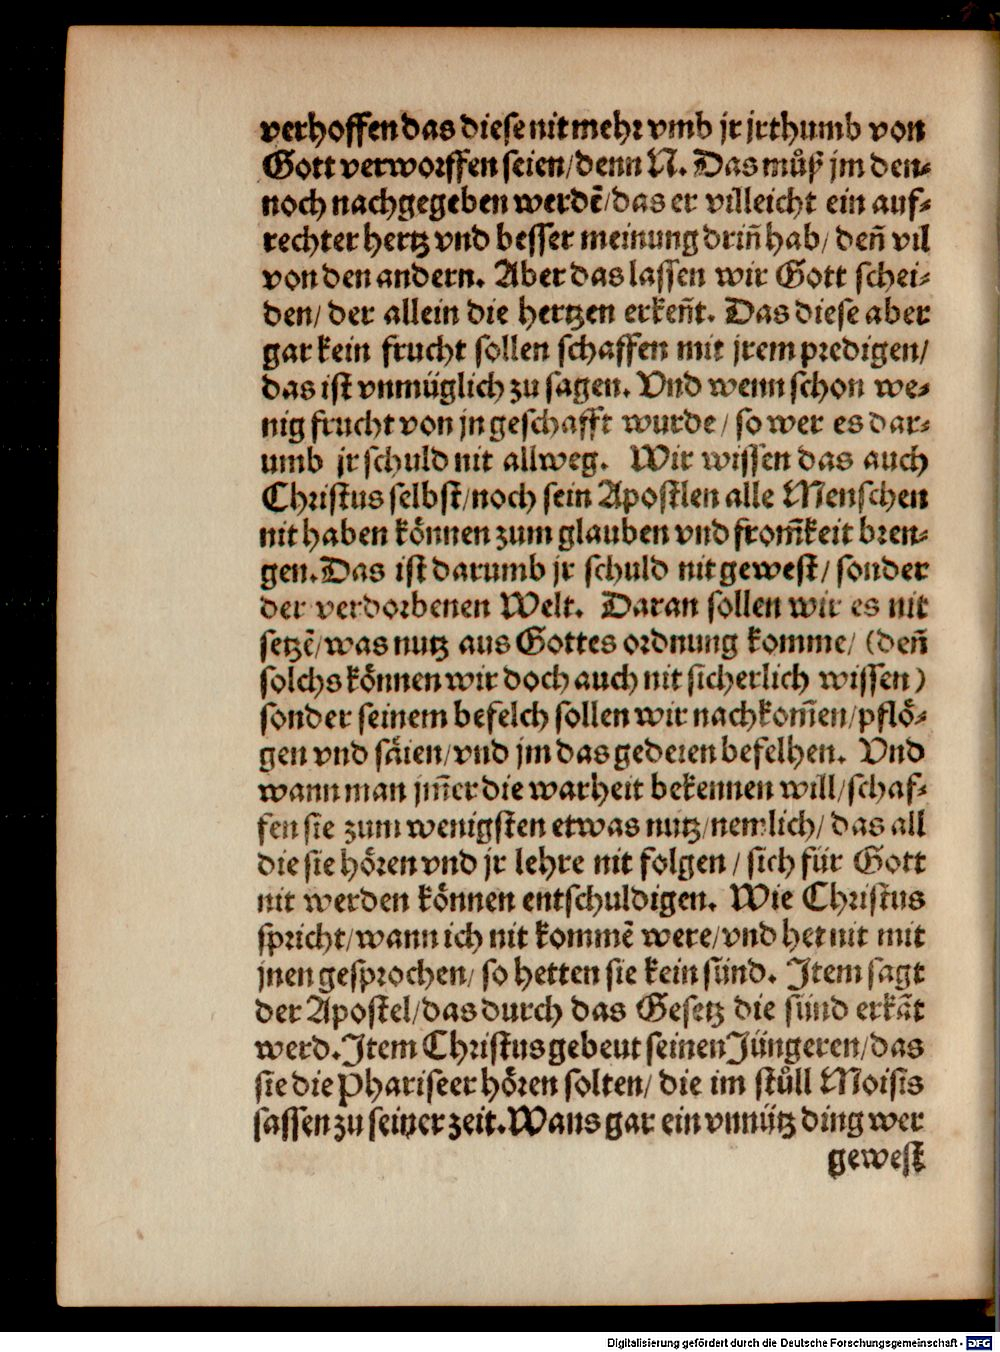 verhoffen das diese nit mehr vmb jr jrthumb von
Gott verworffen seien/denn N. Das můß jm den⸗
noch nachgegeben werdē/das er villeicht ein auf⸗
rechter hertz vnd besser meinung drin̄ hab/ den̄ vil
von den andern. Aber das lassen wir Gott schei⸗
den/ der allein die hertzen erken̄t. Das diese aber
gar kein frucht sollen schaffen mit jrem predigen/
das ist vnmüglich zu sagen. Vnd wenn schon we⸗
nig frucht von jn geschafft wurde/ so wer es dar⸗
umb jr schuld nit allweg. Wir wissen das auch
Christus selbst/noch sein Apostlen alle Menschen
nit haben können zum glauben vnd from̄keit bren⸗
gen. Das ist darumb jr schuld nit gewest/ sonder
der verdorbenen Welt. Daran sollen wir es nit
setzē/was nutz aus Gottes ordnung komme/ (den̄
solchs können wir doch auch nit sicherlich wissen)
sonder seinem befelch sollen wir nachkom̄en/pflö⸗
gen vnd säien/vnd jm das gedeien befelhen. Vnd
wann man jm̄er die warheit bekennen will/schaf⸗
fen sie zum wenigsten etwas nutz/nemlich/ das all
die sie hören vnd jr lehre nit folgen/ sich für Gott
nit werden können entschuldigen. Wie Christus
spricht/wann ich nit kommē were/vnd het nit mit
jnen gesprochen/ so hetten sie kein sünd. Item sagt
der Apostel/das durch das Gesetz die sünd erkāt
werd. Item Christus gebeut seinen Jüngeren/das
sie die Phariseer hören solten/ die im stůll Moisis
sassen zu seiner zeit. Wans gar ein vnnütz ding wer
gewest
Digitalisierung gefördert durch die Deutsche Forschungsgemeinschaft - DFG